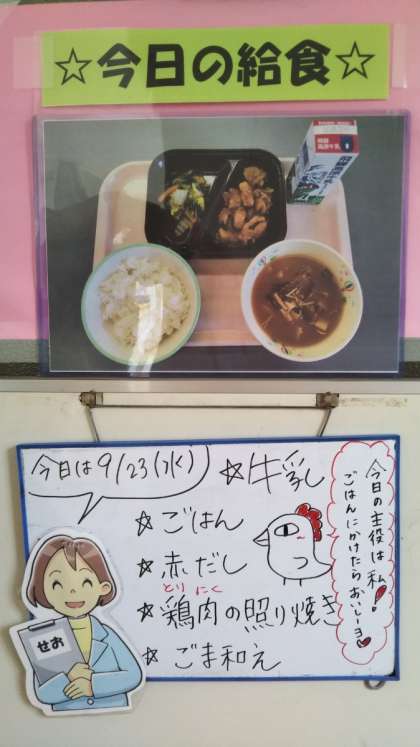 ☆今日の給食☆
今日は9/23(水)
☆牛乳
☆ごはん
☆赤だし
とり にく
☆鶏肉の照り焼き
☆ごま和え
今日の主役は私!
ごはんにかけたらおいしーヨ
せお